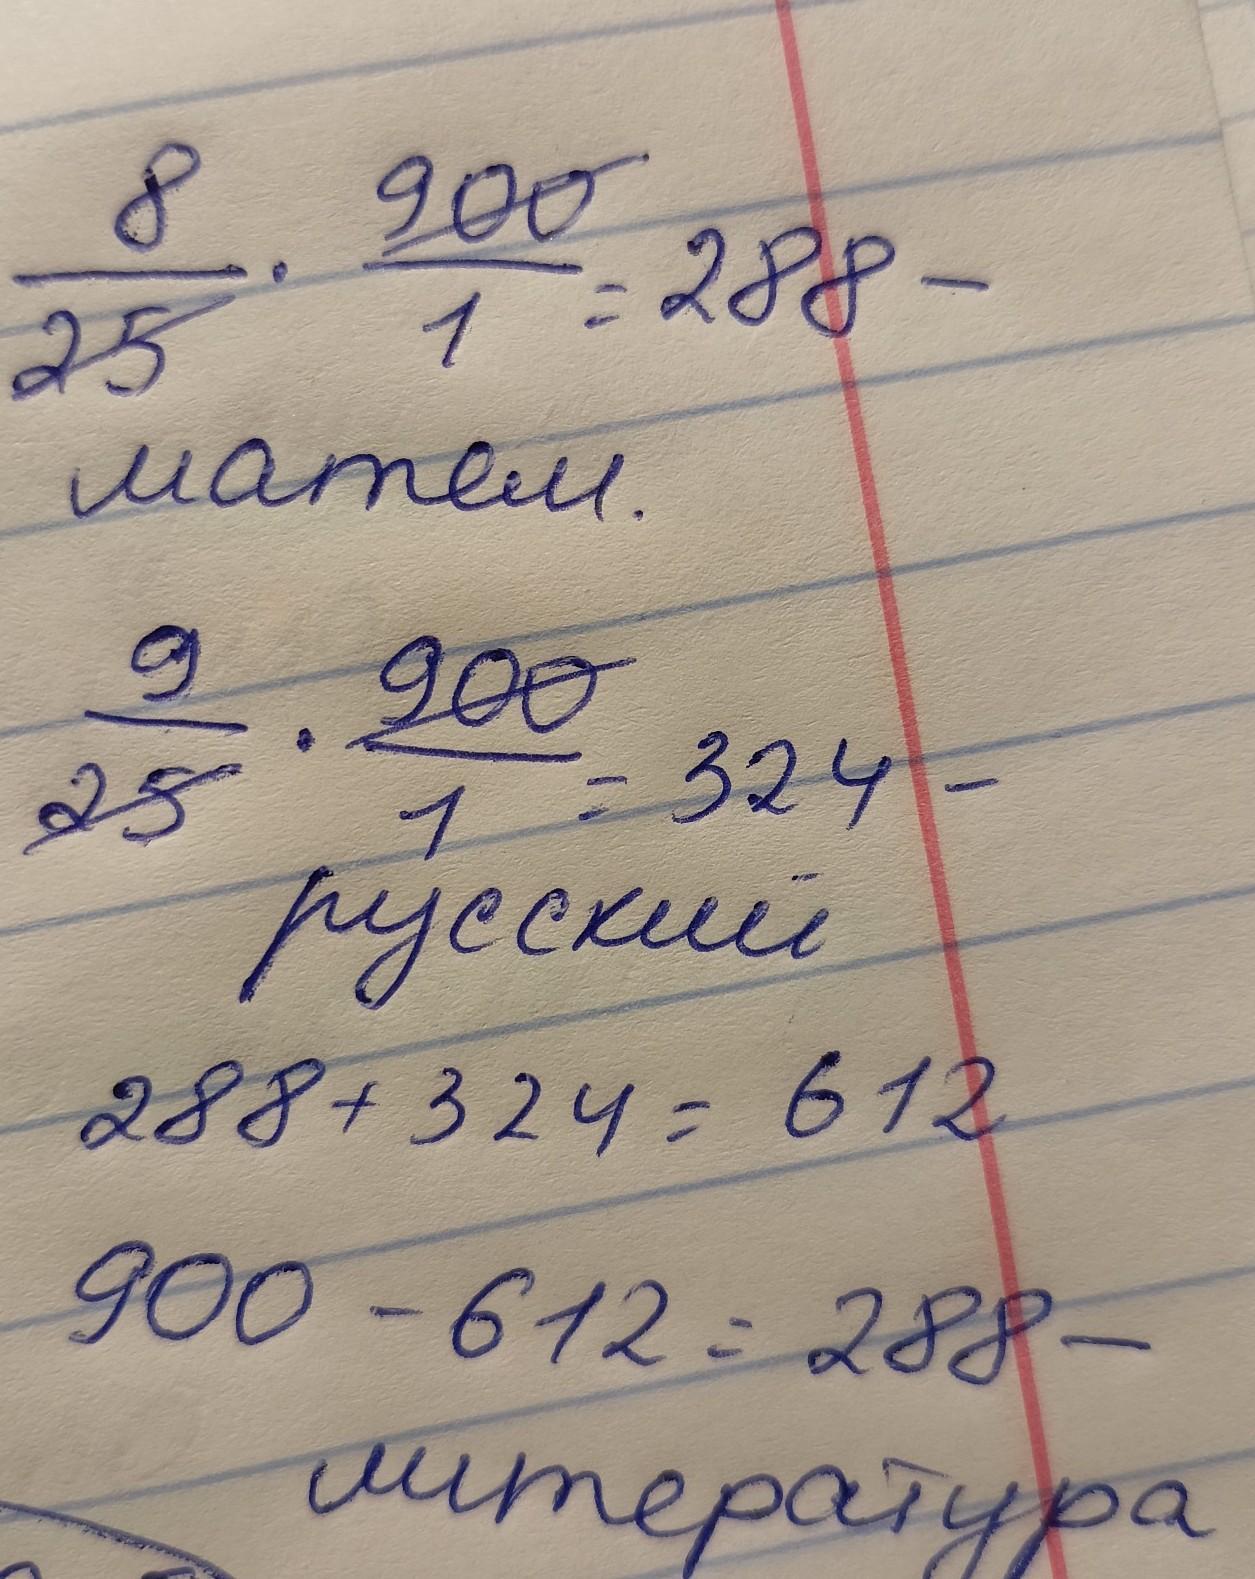 8/25 · 900/1 = 288 –
матем.
9/25 · 900/1 = 324 –
русский
288 + 324 = 612
900 – 612 = 288 –
литература